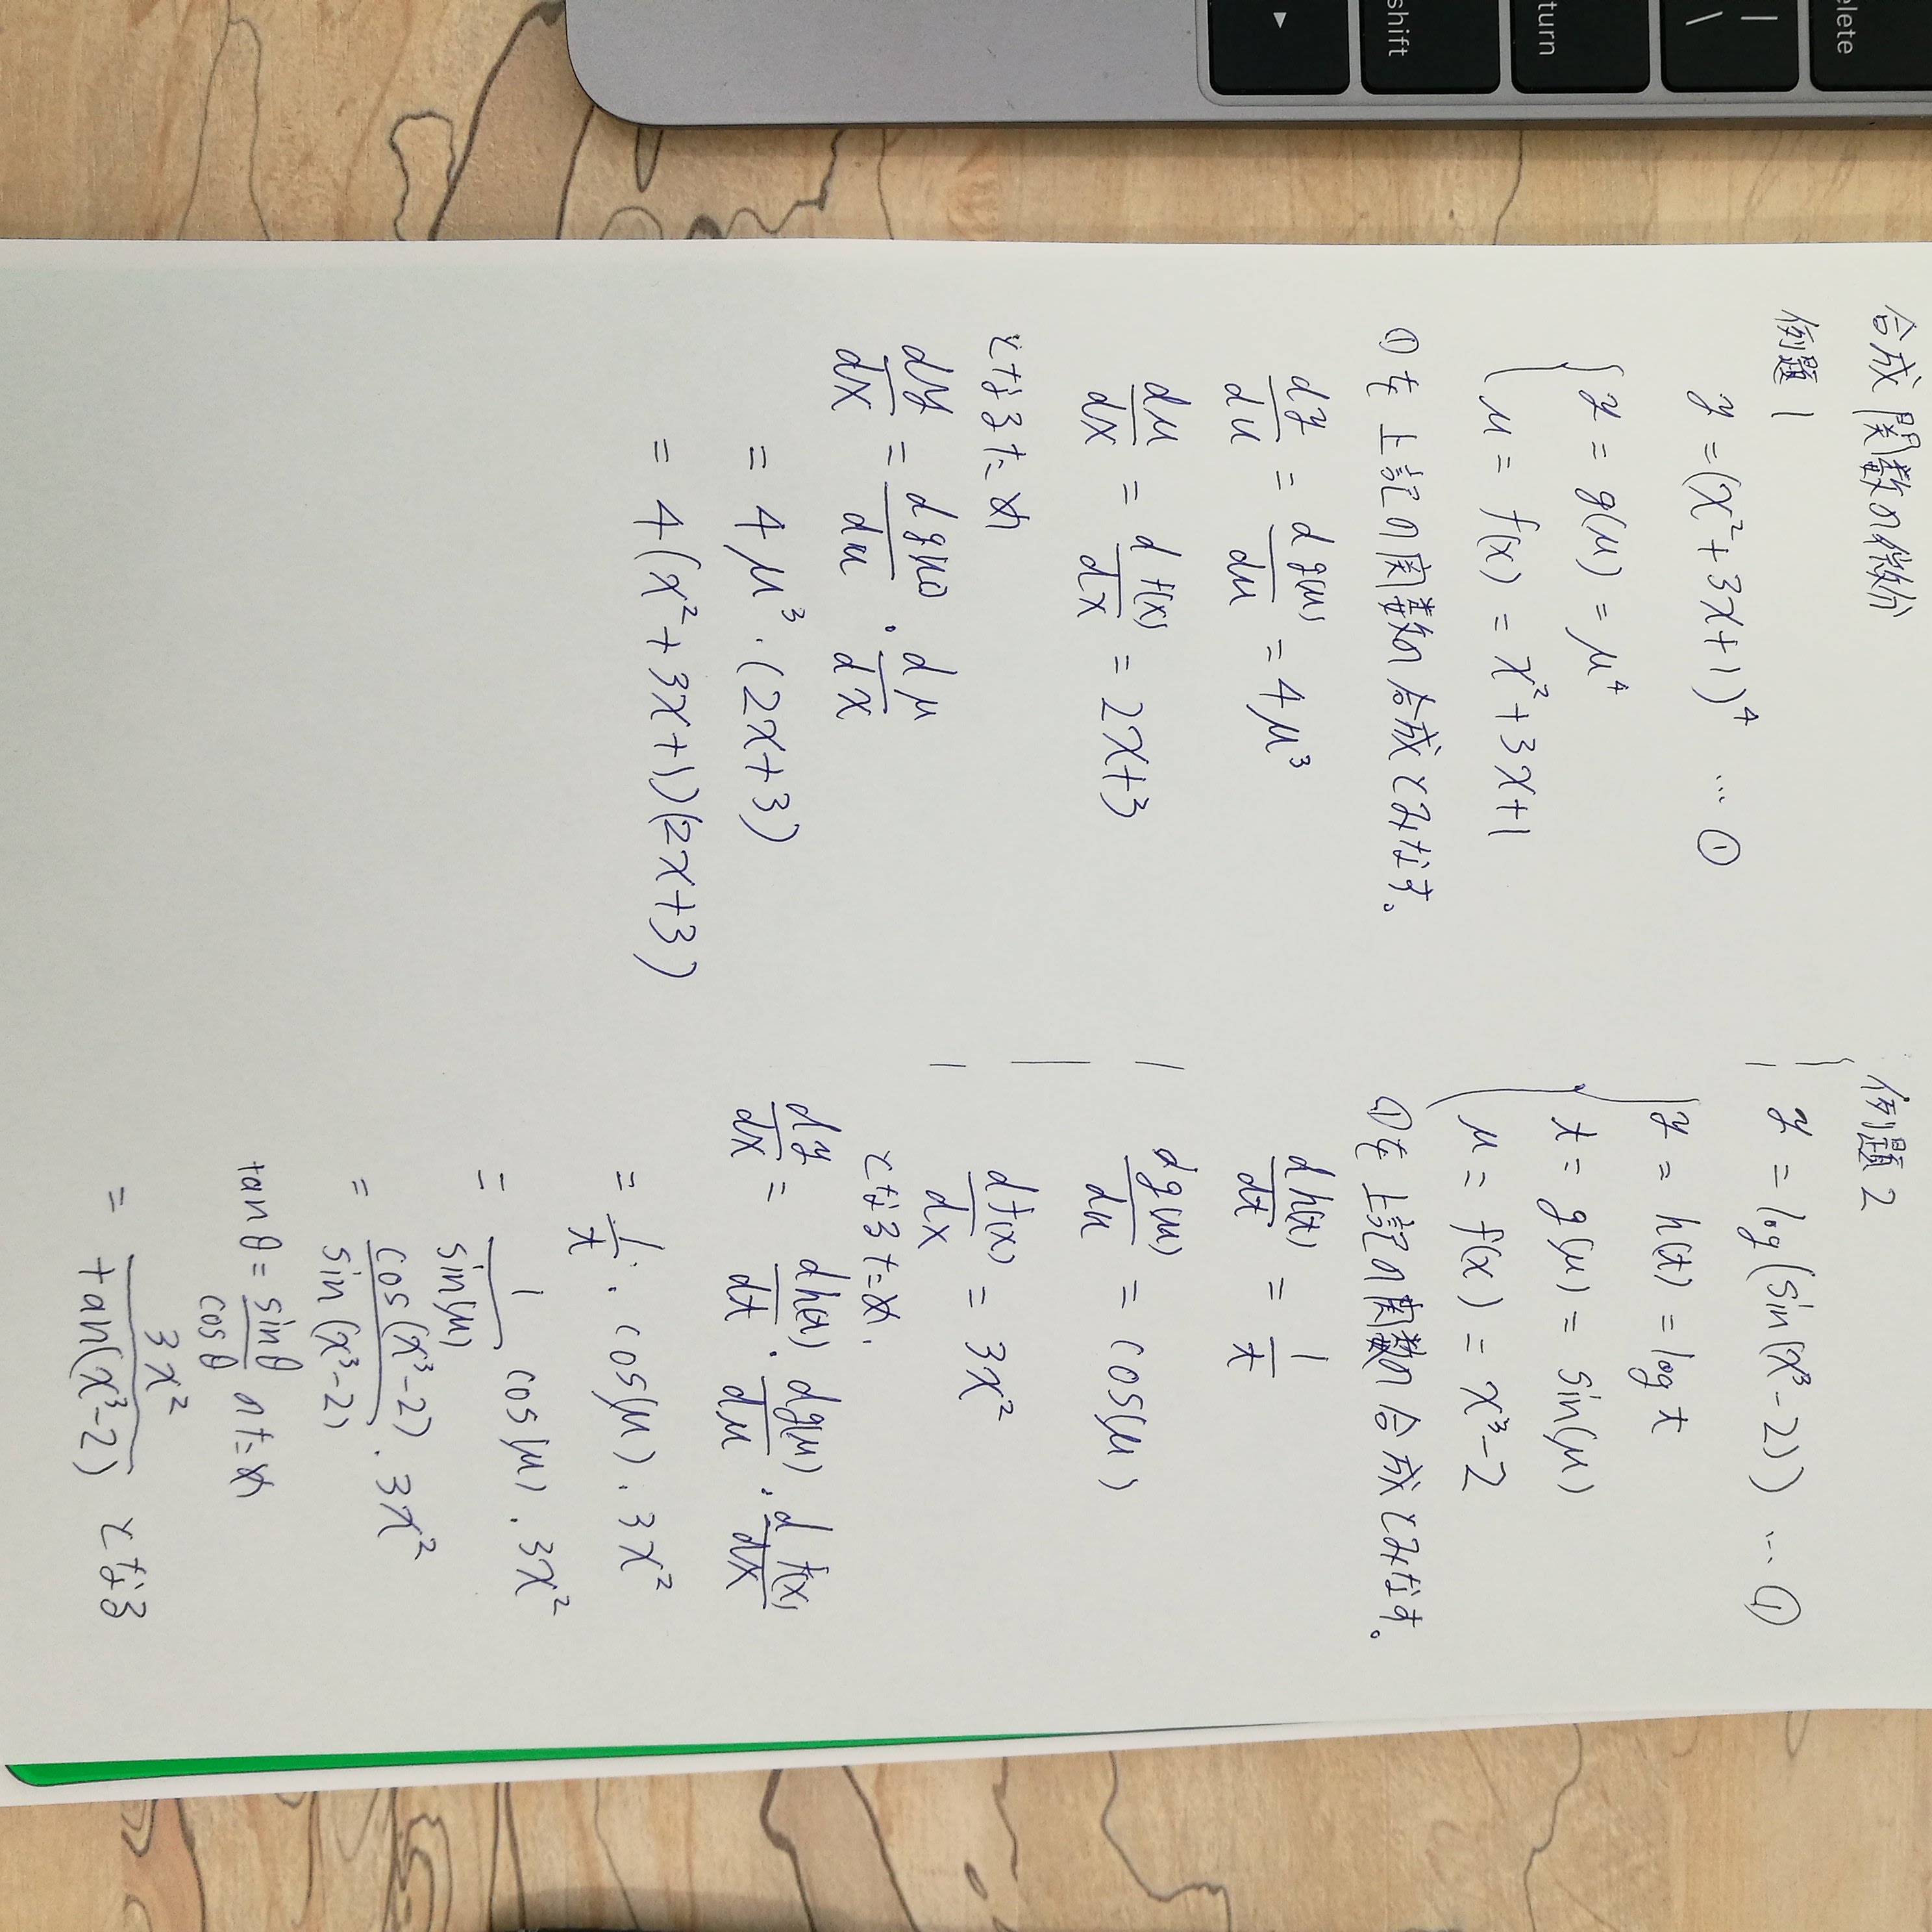 合成関数の微分
例題1
y = (x²+3x+1)⁴ … ①
y = g(μ) = μ⁴
μ = f(x) = x²+3x+1
①を上記の関数の合成とみなす。
dy/dμ = dg(μ)/dμ = 4μ³
dμ/dx = df(x)/dx = 2x+3
となるため
dy/dx = dg(μ)/dμ · dμ/dx
= 4μ³·(2x+3)
= 4(x²+3x+1)(2x+3)
例題2
y = log(sin(x³-2)) … ①
y = h(t) = log t
t = g(μ) = sin(μ)
μ = f(x) = x³-2
①を上記の関数の合成とみなす。
dh(t)/dt = 1/t
dg(μ)/dμ = cos(μ)
df(x)/dx = 3x²
となるため.
dy/dx = dh(t)/dt · dg(μ)/dμ · df(x)/dx
= 1/t · cos(μ)·3x²
= 1/sin(μ) cos(μ)·3x²
= cos(x³-2)/sin(x³-2) · 3x²
tanθ = sinθ/cosθ のため
= 3x²/tan(x³-2) となる
elete
| \
turn
shift
▶